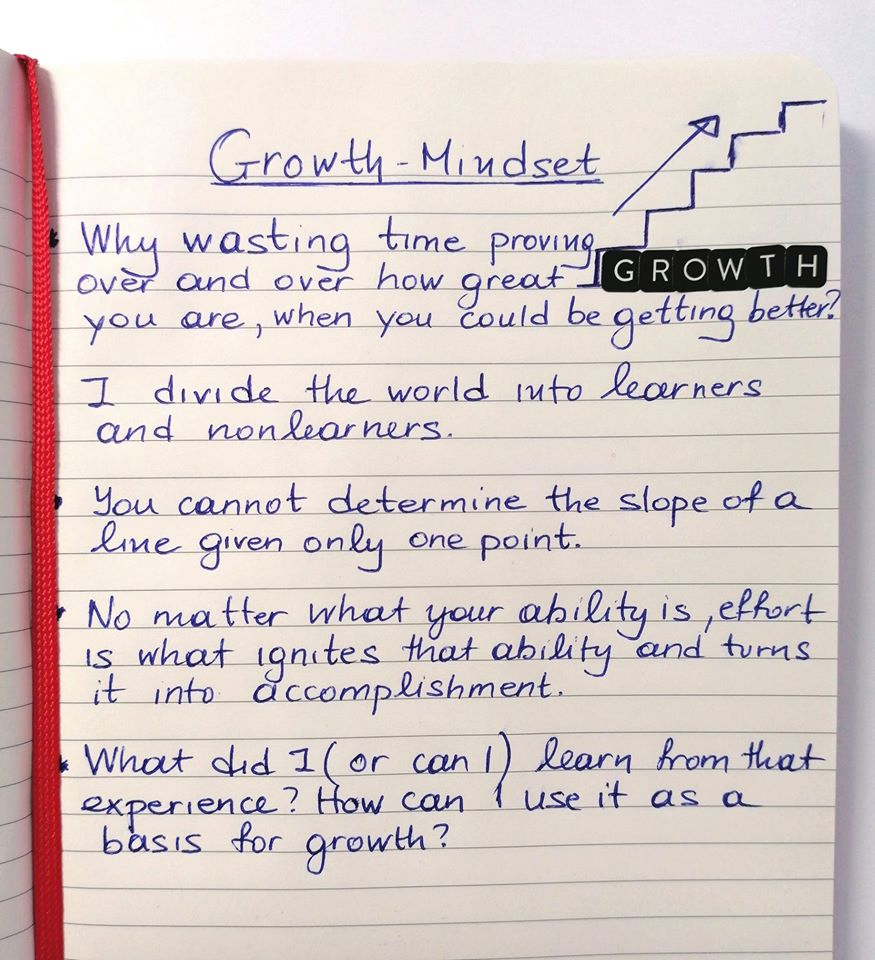 Growth-Mindset
Why wasting time proving
over and over how great
GROWTH
you are, when you could be getting better?
I divide the world into learners
and nonlearners.
You cannot determine the slope of a
line given only one point.
No matter what your ability is, effort
is what ignites that ability and turns
it into accomplishment.
What did I (or can I) learn from that
experience? How can I use it as a
basis for growth?